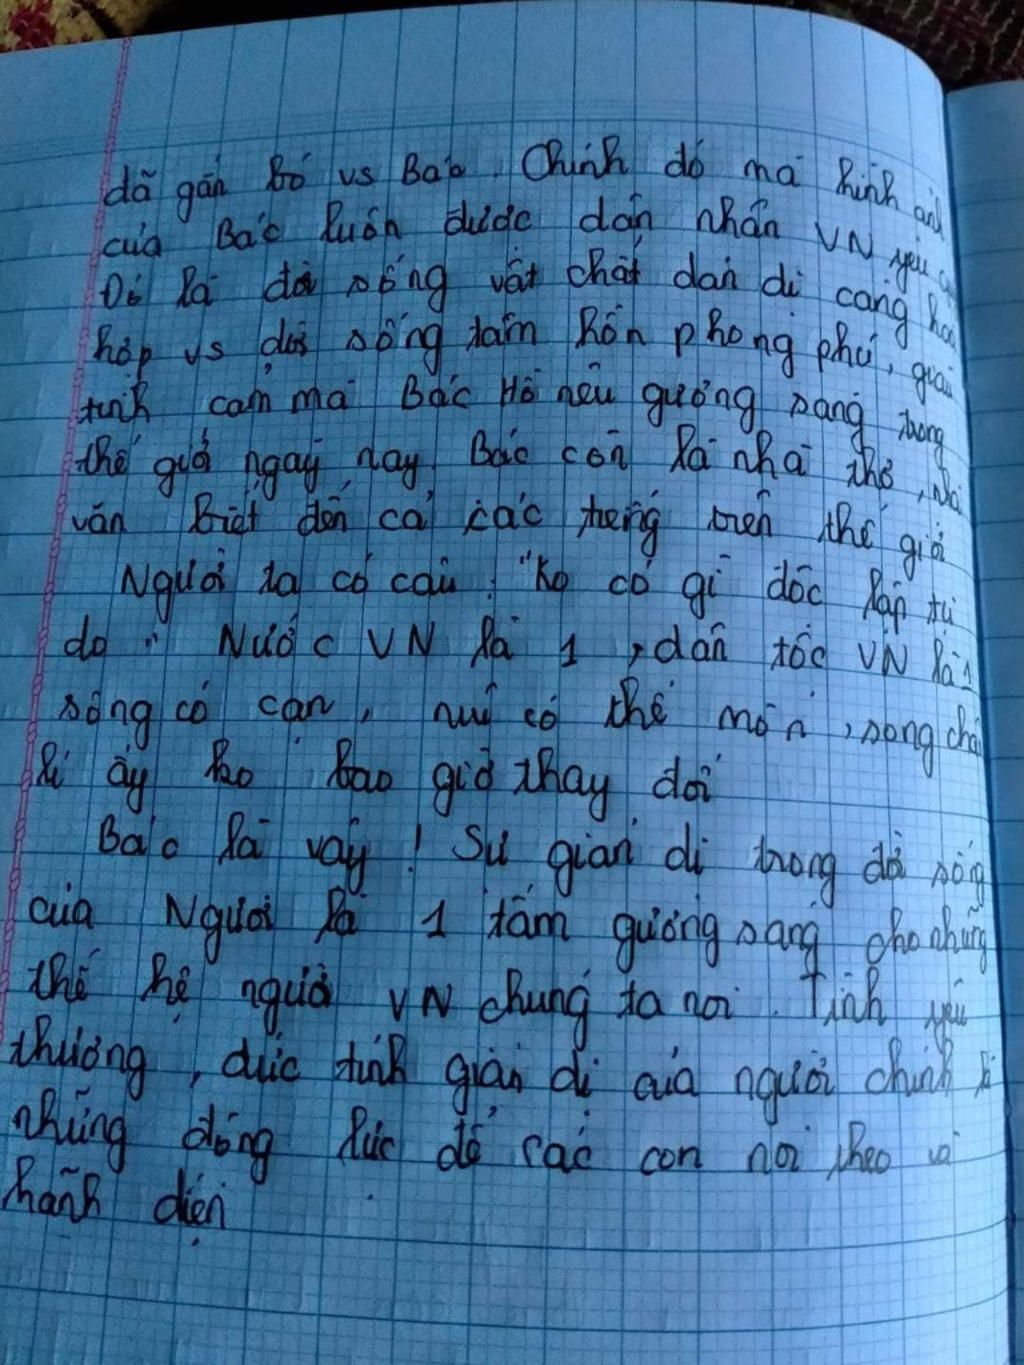 đã gắn bó vs Bác. Chính đó mà hình ảnh
của Bác luôn được dân nhân VN yêu
Đó là đời sống vật chất dản dị càng hoà
hợp vs đời sống tâm hồn phong phú,
tình cảm mà Bác Hồ nêu gương sáng trong
thế giới ngày nay. Bác còn là nhà thơ, nhà
văn biết đến cả các tiếng trên thế giới
Người ta có câu: "Ko có gì độc lập tự
do" Nước VN là 1, dân tộc VN là 1
sông có cạn, núi có thể mòn, song chân
lí ấy ko bao giờ thay đổi
Bác là vậy! Sự giản dị trong đời sống
của Người là 1 tấm gương sáng cho những
thế hệ người VN chúng ta noi. Tình yêu
thương, đức tính giản dị của người chính là
những động lực để các con noi theo và
hãnh diện.